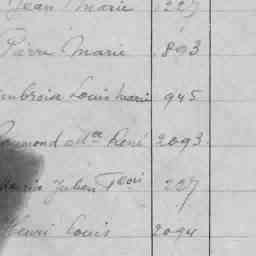 Jean Marie 227
Pierre Marie 803
Ambroise Louis Marie 945
Raymond Mce René 2093
Julien 227
Henri Louis 2094